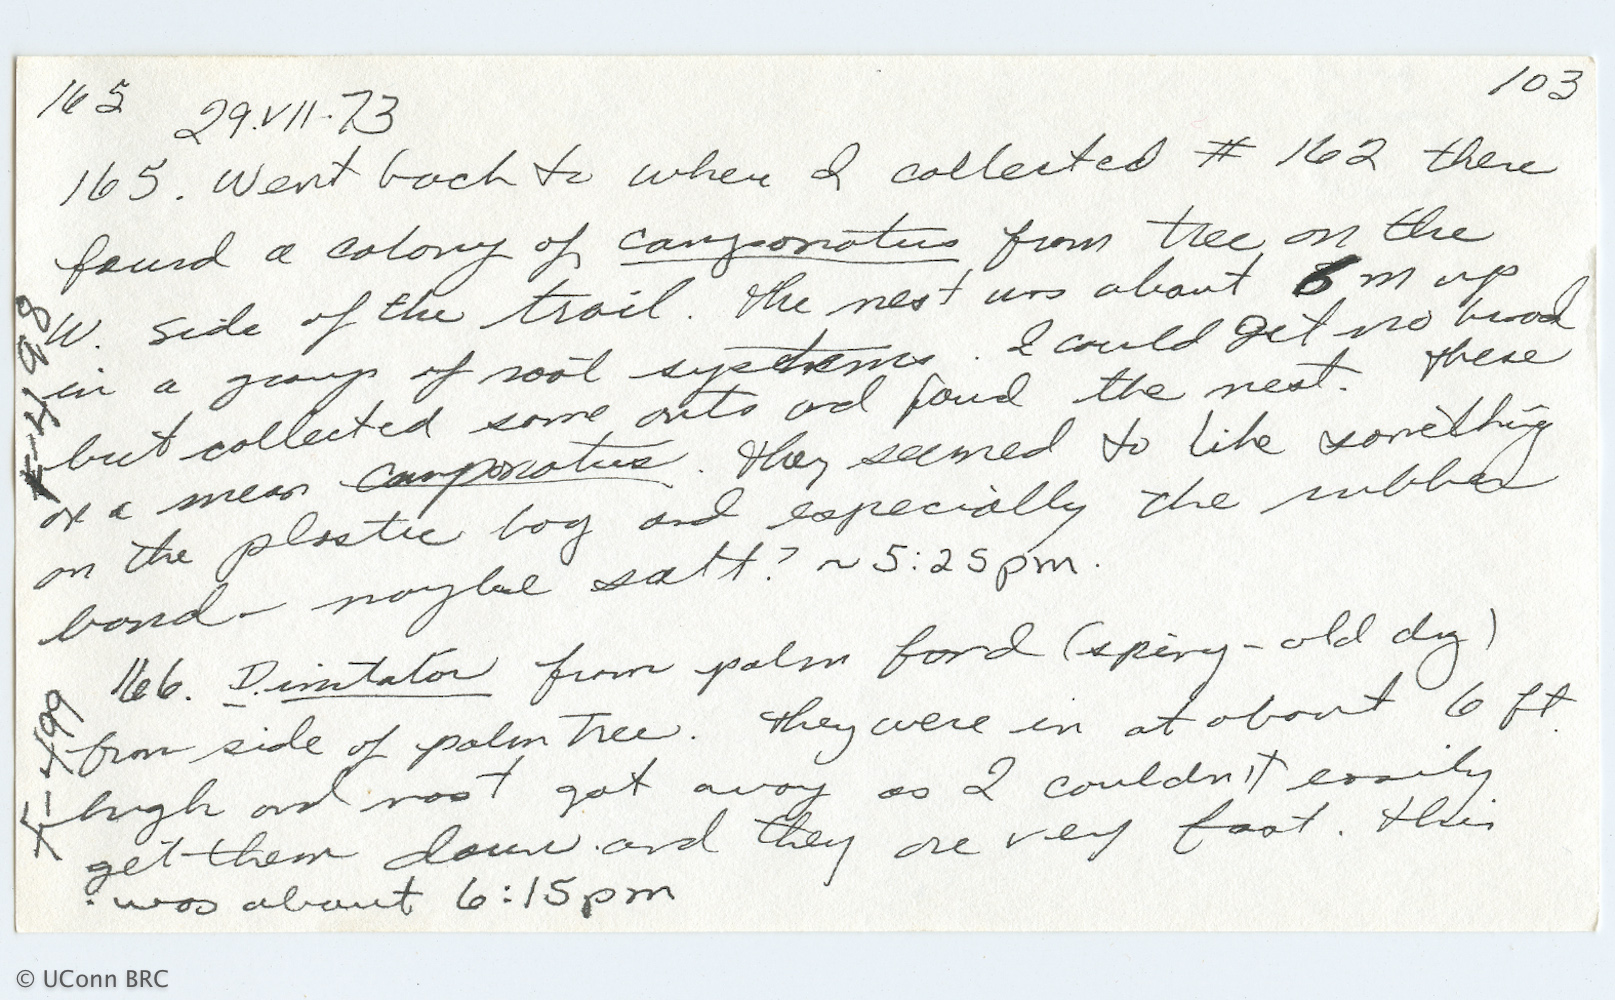 165 103
29.VII.73
165. Went back to where I collected # 162 there
found a colony of camponotus from tree on the
W. side of the trail. The nest was about 6 m up
in a group of root systems. I could get no brood
but collected some ants and found the nest. These
are a mean camponotus. They seemed to like something
on the plastic bag and especially the rubber
band - maybe salt? ~ 5:25pm.
166. D. imitator from palm frond (spiny - old dry)
from side of palm tree. They were in at about 6 ft.
high and most got away as I couldn't easily
get them down and they are very fast. This
was about 6:15pm
F-498
F-499
© UConn BRC